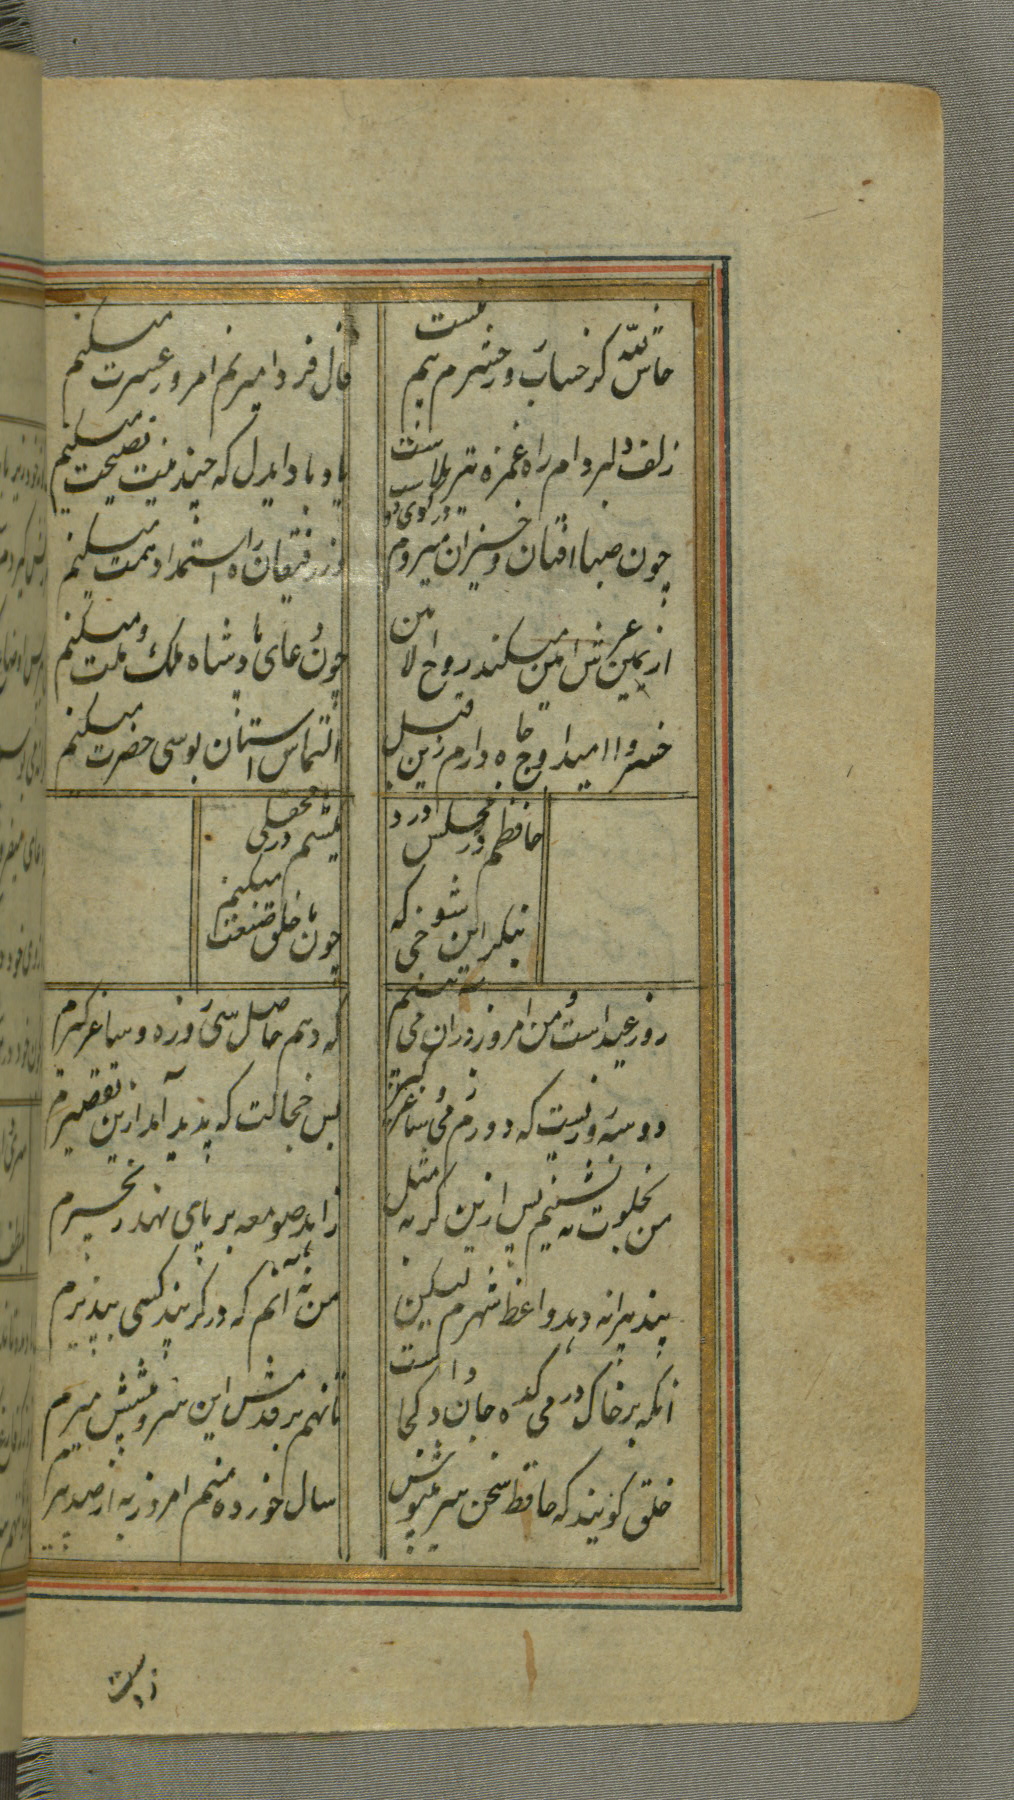 حاش لله کز حساب روز حشرم بیم نیست
فال فردا میزنم امروز عشرت میکنم
زلف دلبر دام راه غمزه تیر بلاست
یاد دار ایدل که چندینت نصیحت میکنم
چون صبا افتان و خیزان میروم در کوی دوست
وز رفیقان ره استمداد همت میکنم
از یمین عرش امین میکند روح الامین
چون دعای پادشاه ملک و ملت میکنم
خسروا امید اوج جاه دارم زین قبل
التماس استان بوسی حضرت میکنم
حافظم در مجلس درد
یکشم در محفلی
بنگر این شوخی که
چون با خلق صنعت میکنم
روز عید است و من امروز در ان می
که دهم حاصل سی روزه و ساغر گیرم
دو سه روزیست که دورم ز می و ساغر
بس خجالت که پدید آید ازین تقصیرم
من بخلوت ننشینم پس ازین گر به مثل
زاهد صومعه بر پای نهد زنجیرم
پند پیرانه دهد واعظ شهرم لیکن
من نه آنم که دگر پند کسی بپذیرم
انکه بر خاک در میکده جان داد کجاست
تا نهم بر قدمش این سر و پیشش میرم
خلق گویند که حافظ سخن پیر نیوش
سال خورده میم امروز به از صد پیرم
زدست